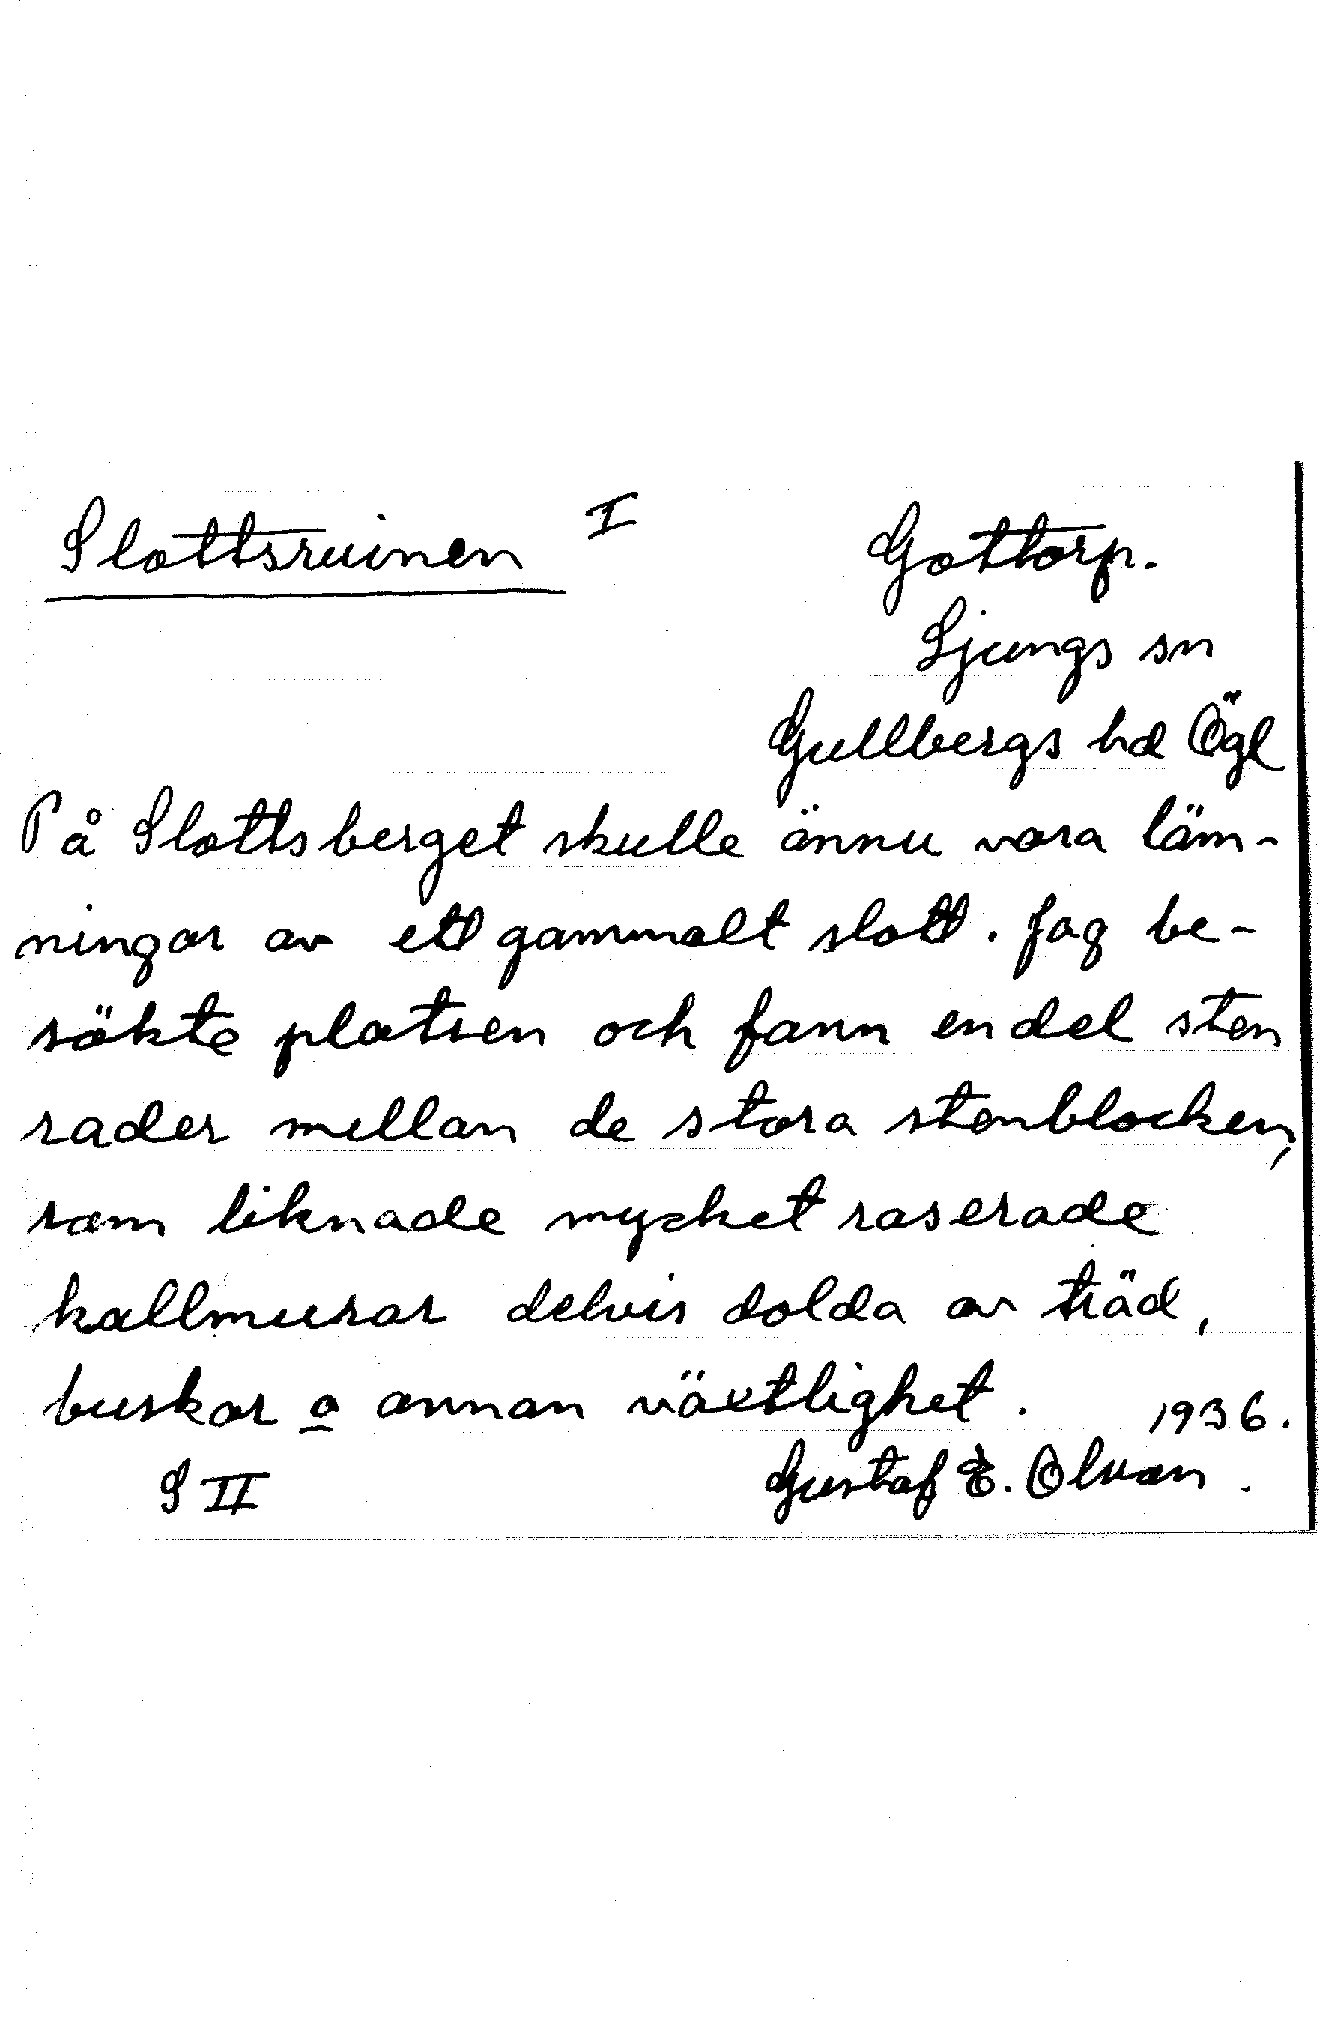 Slottsruinen I
Gottorp.
Ljungs sn
Gullbergs hd Ögl
På Slottsberget skulle ännu vara läm-
ningar av ett gammalt slott. Jag be-
sökte platsen och fann en del sten
rader mellan de stora stenblocken,
som liknade mycket raserade
kallmurar delvis dolda av träd,
buskar o annan växtlighet. 1936.
S II Gustaf E. Olvon.